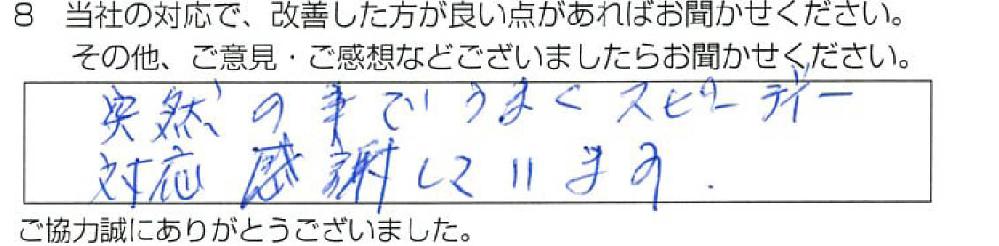 8 当社の対応で、改善した方が良い点があればお聞かせください。
その他、ご意見・ご感想などございましたらお聞かせください。
突然の事でうまくスピーディー
対応感謝しています.
ご協力誠にありがとうございました。